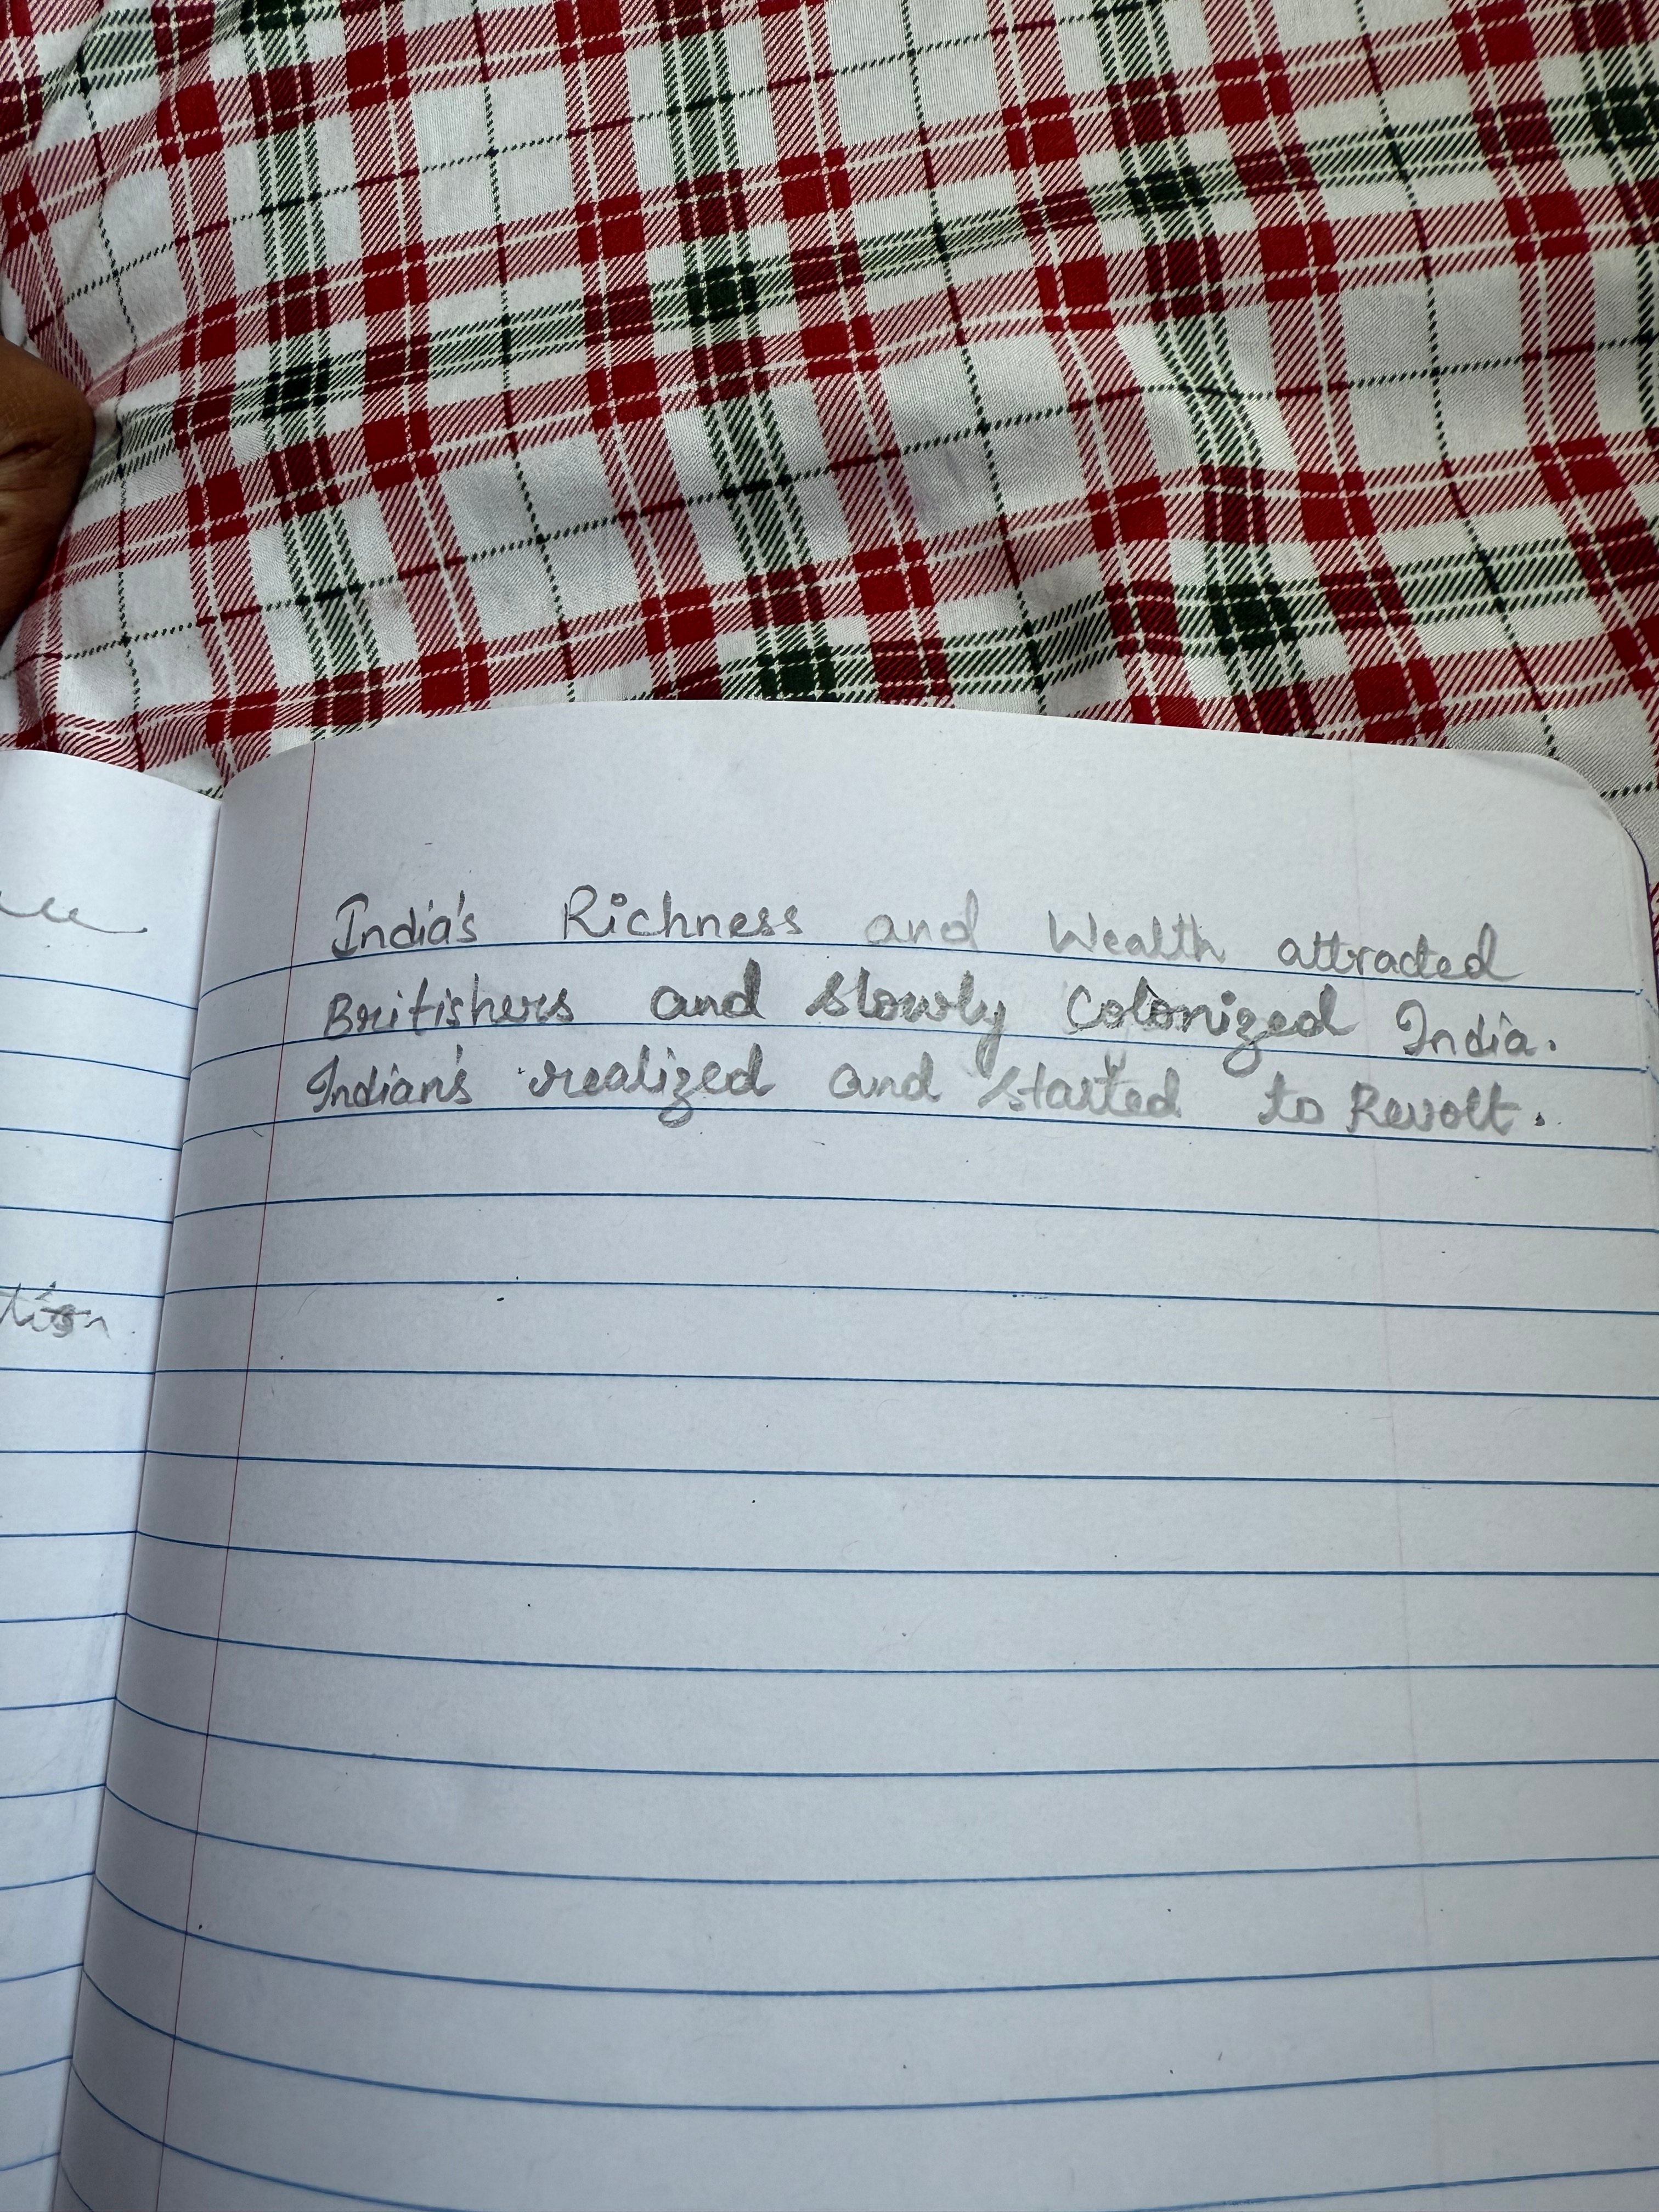 India's Richness and Wealth attracted
Britishers and slowly Colonized India.
Indian's realized and started to Revolt.